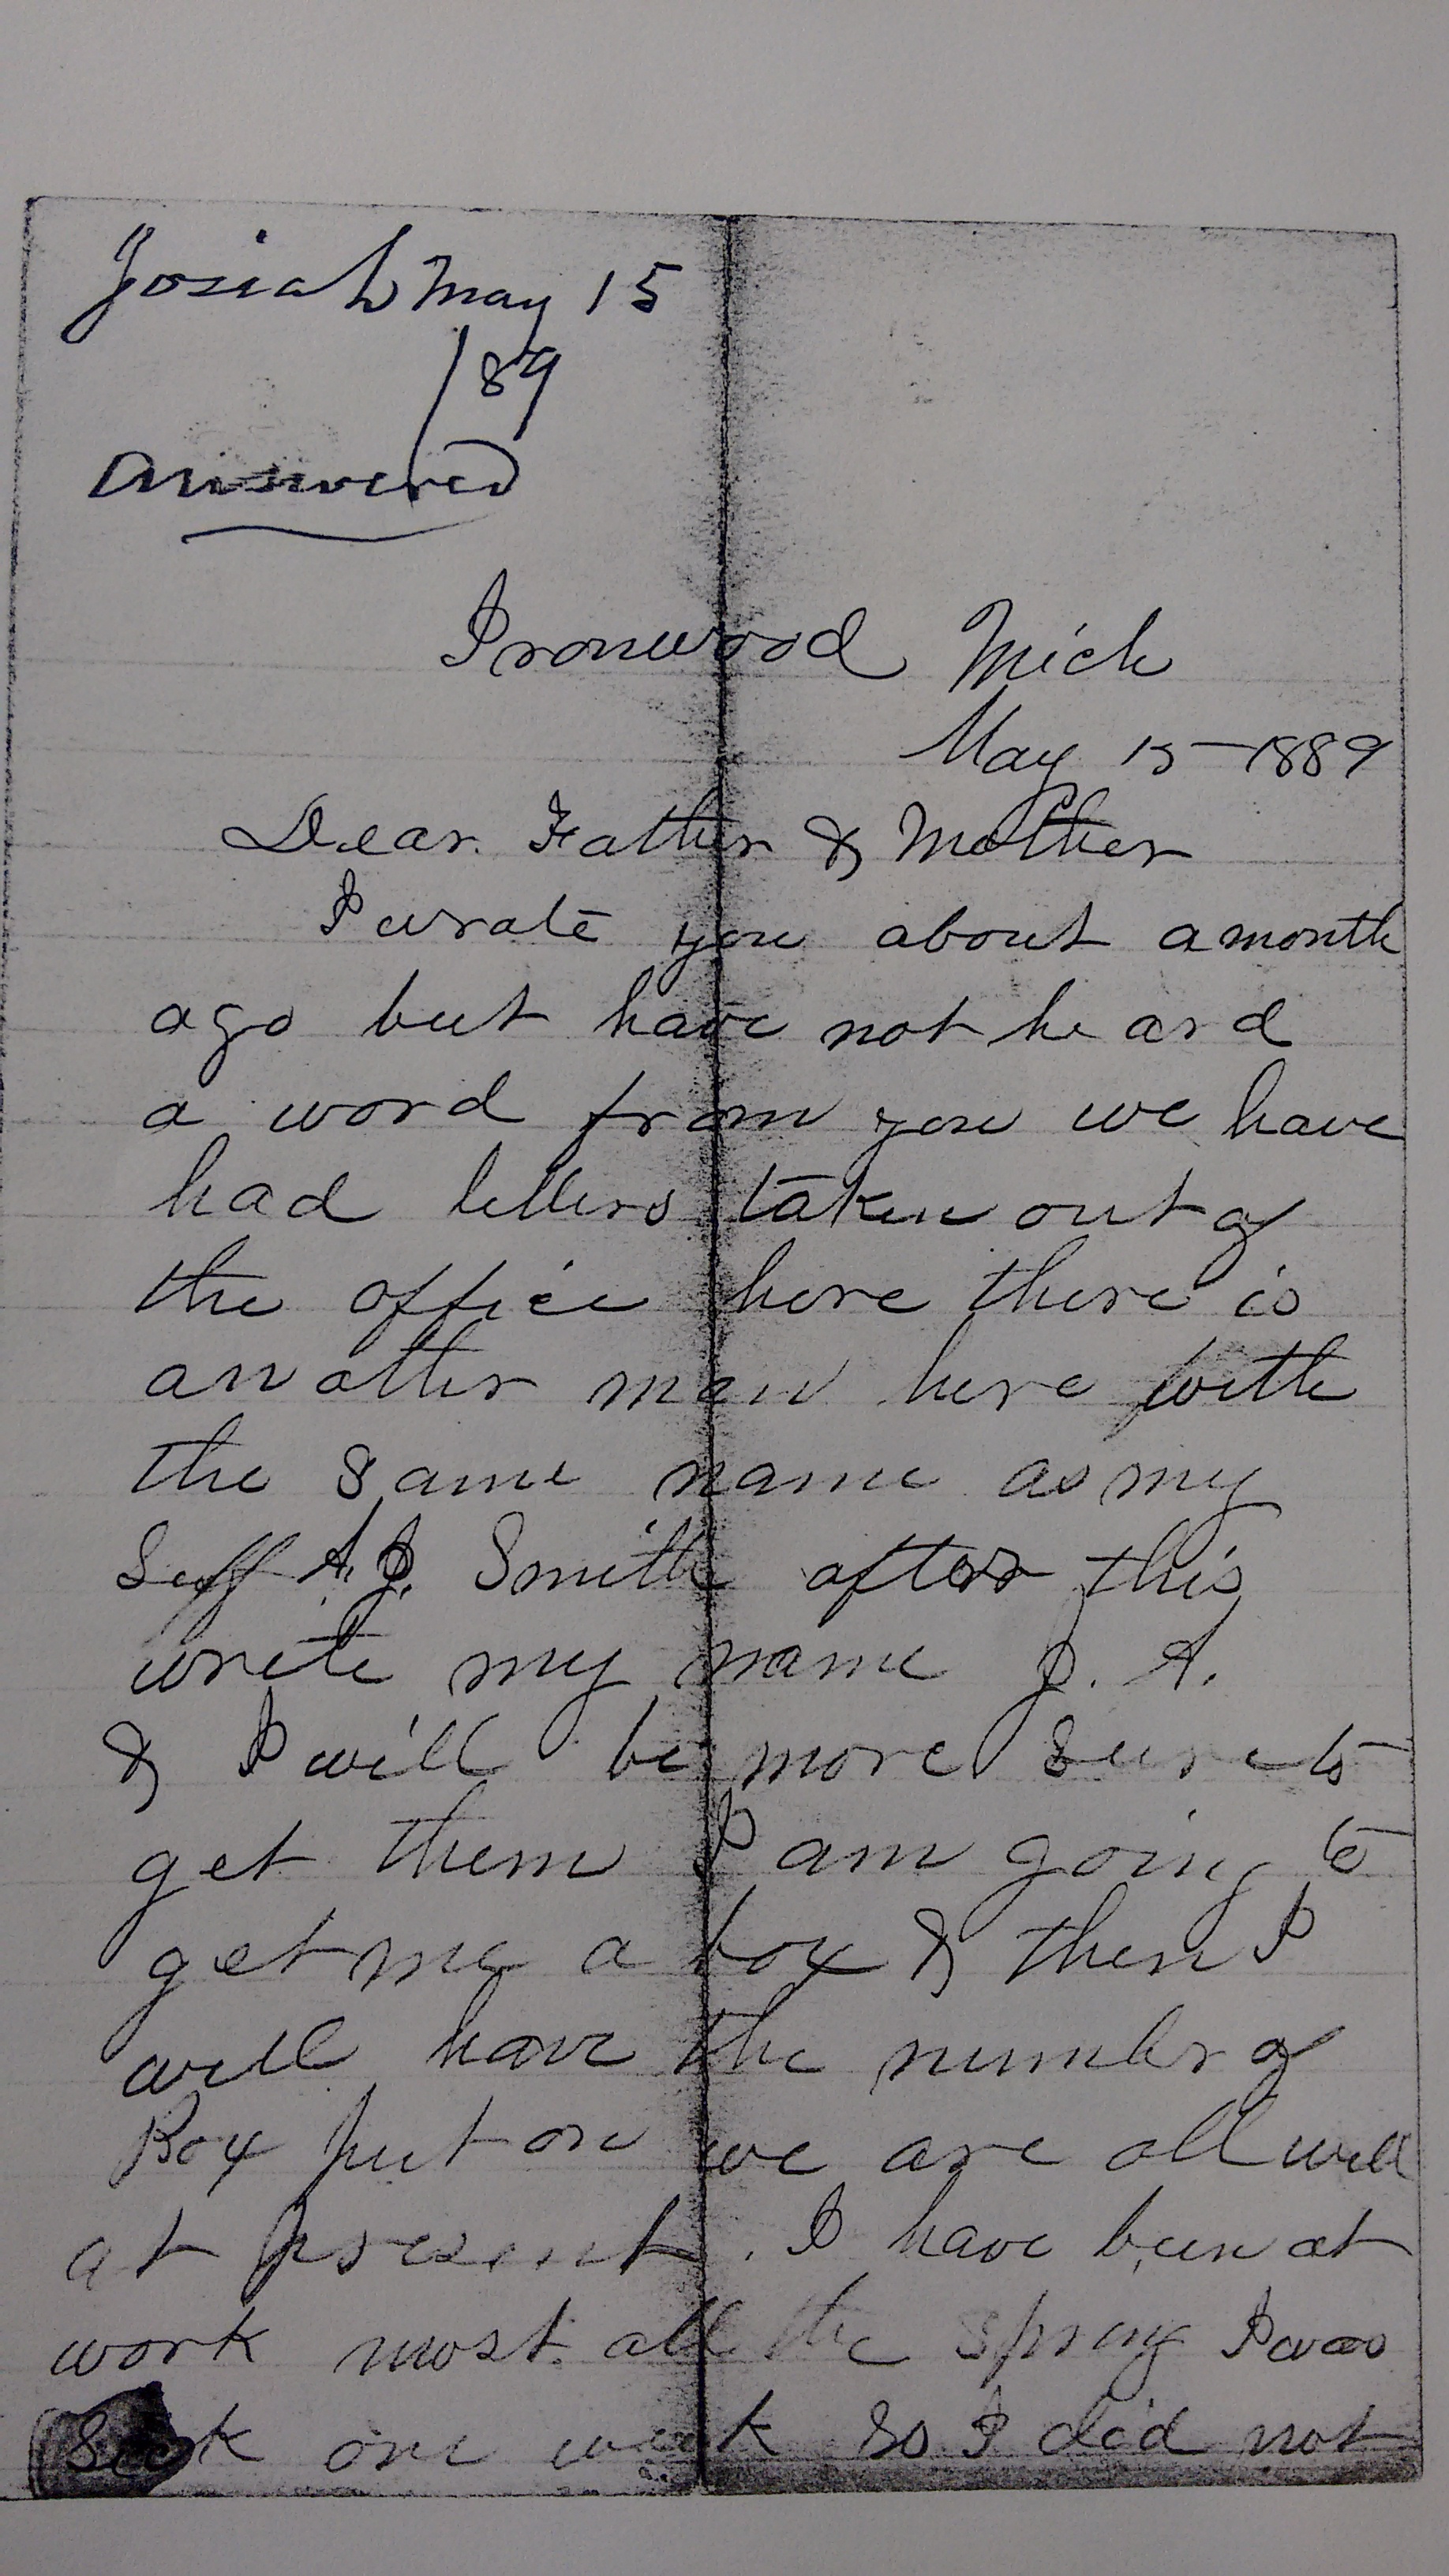 Josiah May 15
/89
Answered
Ironwood Mich
May 15-1889
Dear Father & Mother
I wrote you about a month
ago but have not heard
a word from you we have
had letters taken out of
the office here there is
an other man here with
the same name as my
Suff A. J. Smith after this
write my name J. A.
& I will be more sure to
get them I am going to
get me a box & then I
will have the number of
Box put on we are all well
at present. I have been at
work most all the spring I was
Sick one week So I did not